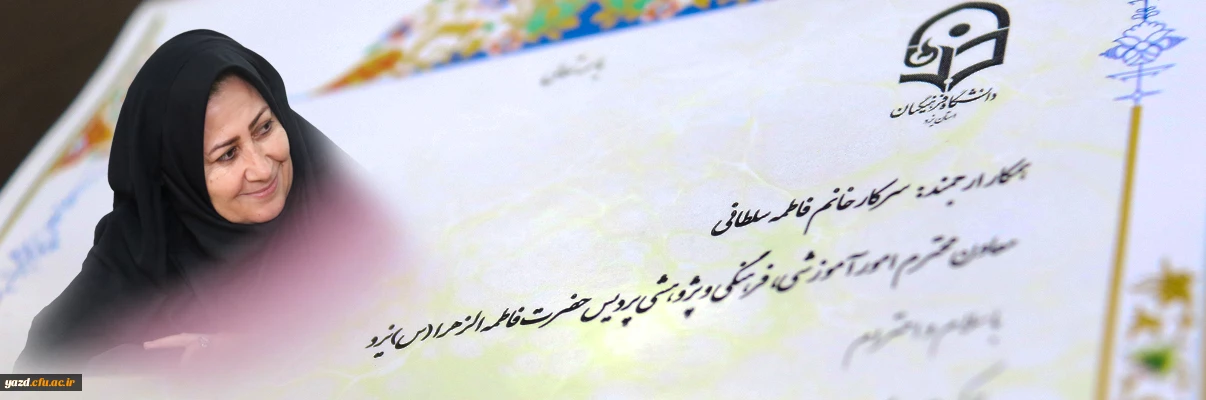 باسمه تعالی
دانشگاه فرهنگیان
استان یزد
همکار ارجمند: سرکار خانم فاطمه سلطانی
معاون محترم امور آموزشی، فرهنگی و پژوهشی پردیس حضرت فاطمه الزهرا (س) یزد
با سلام و احترام
yazd.cfu.ac.ir